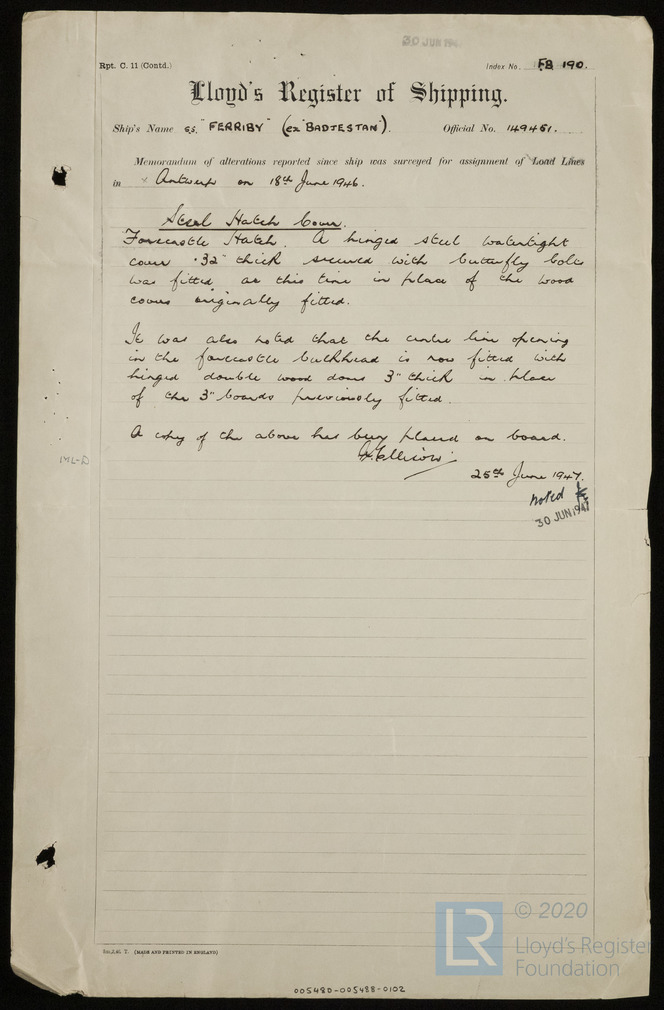 30 JUN 194
Rpt. C. 11 (Contd.)
Index No. FB 190.
Lloyd's Register of Shipping.
Ship's Name s.s. "FERRIBY" (ex "BADJESTAN").
Official No. 149451.
Memorandum of alterations reported since ship was surveyed for assignment of Load Lines
in Antwerp on 18th June 1946.
Steel Hatch Cover.
Forecastle Hatch. A hinged steel watertight
cover .32" thick secured with butterfly bolts
was fitted at this time in place of the wood
covers originally fitted.
It was also noted that the centre line opening
in the forecastle bulkhead is now fitted with
hinged double wood doors 3" thick in place
of the 3" boards previously fitted.
A copy of the above has been placed on board.
Ellison
25th June 1947.
noted
30 JUN 1947
(MADE AND PRINTED IN ENGLAND)
LR
© 2020
Lloyd's Register
Foundation
005480-005488-0102